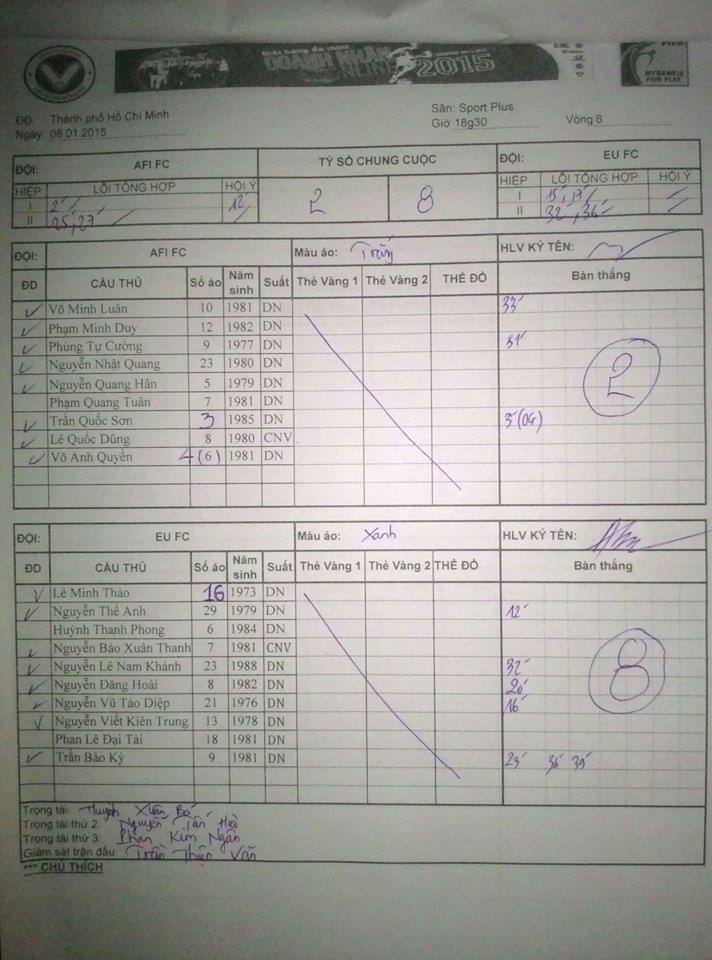 Giải bóng đá mini
DOANH NHÂN
ONLINE 2015
FIFA
MY GAME IS
FAIR PLAY
ĐĐ: Thành phố Hồ Chí Minh Sân: Sport Plus
Ngày: 08.01.2015 Giờ 18g30 Vòng 6
ĐỘI: AFI FC TỶ SỐ CHUNG CUỘC ĐỘI: EU FC
HIỆP LỖI TỔNG HỢP HỘI Ý 2 8 HIỆP LỖI TỔNG HỢP HỘI Ý
I 2' 12' I 15', 17'
II 25', 27' II 32', 36'
ĐỘI: AFI FC Màu áo: Trắng HLV KÝ TÊN:
ĐD CẦU THỦ Số áo Năm sinh Suất Thẻ Vàng 1 Thẻ Vàng 2 THẺ ĐỎ Bàn thắng
Võ Minh Luân 10 1981 DN 33'
Phạm Minh Duy 12 1982 DN
Phùng Tự Cường 9 1977 DN 31'
Nguyễn Nhật Quang 23 1980 DN
Nguyễn Quang Hân 5 1979 DN
Phạm Quang Tuân 7 1981 DN
Trần Quốc Sơn 3 1985 DN 3' (OG)
Lê Quốc Dũng 8 1980 CNV
Võ Anh Quyền 4 (6) 1981 DN
2
ĐỘI: EU FC Màu áo: Xanh HLV KÝ TÊN:
ĐD CẦU THỦ Số áo Năm sinh Suất Thẻ Vàng 1 Thẻ Vàng 2 THẺ ĐỎ Bàn thắng
Lê Minh Thảo 16 1973 DN
Nguyễn Thế Anh 29 1979 DN 12'
Huỳnh Thanh Phong 6 1984 DN
Nguyễn Bảo Xuân Thanh 7 1981 CNV
Nguyễn Lê Nam Khánh 23 1988 DN 32'
Nguyễn Đăng Hoài 8 1982 DN 20'
Nguyễn Vũ Táo Diệp 21 1976 DN 16'
Nguyễn Viết Kiên Trung 13 1978 DN
Phan Lê Đại Tài 18 1981 DN
Trần Bảo Kỳ 9 1981 DN 23' 36' 39'
8
Trọng tài: Xuân Bá
Trọng tài thứ 2: Nguyễn Tấn
Trọng tài thứ 3: Phan Kim Ngân
Giám sát trận đấu: Trần Thiện Văn
*** CHÚ THÍCH